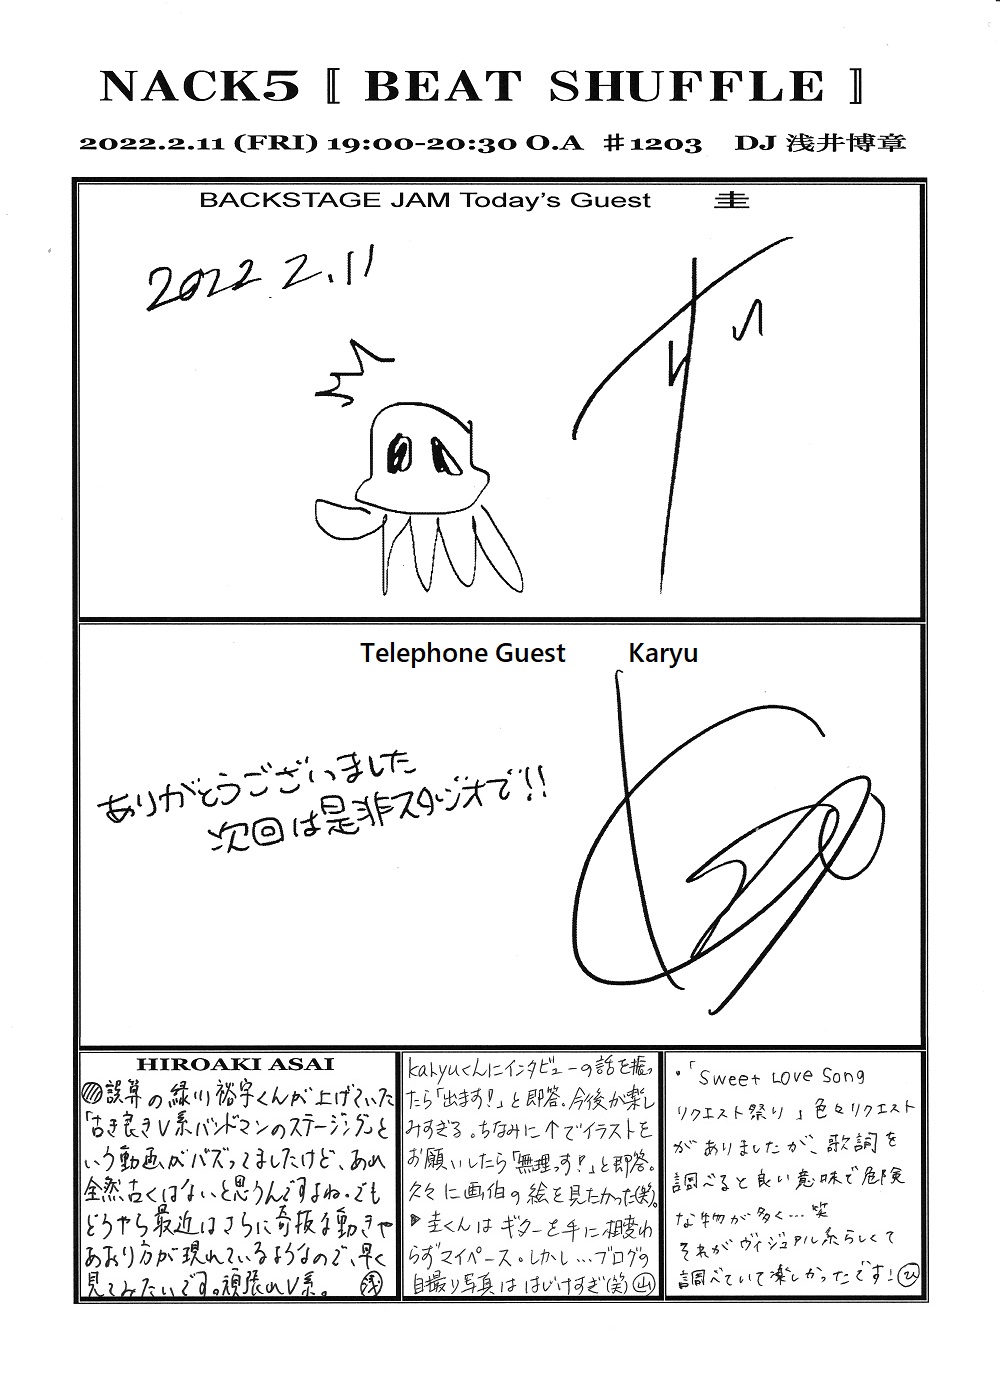 NACK5 〚 BEAT SHUFFLE 〛
2022.2.11 (FRI) 19:00-20:30 O.A ♯1203 DJ 浅井博章
BACKSTAGE JAM Today's Guest 圭
2022 2.11
Telephone Guest Karyu
ありがとうございました
次回は是非スタジオで!!
HIROAKI ASAI
誤算の緑川裕宇くんが上げていた
「古き良きV系バンドマンのステージング」と
いう動画がバズってましたけど、あれ
全然古くはないと思うんですよね。でも
どうやら最近はさらに奇抜な動きや
あおり方が現れているようなので、早く
見てみたいです。頑張れV系。 浅
karyuくんにインタビューの話を振っ
たら「出ます!」と即答。今後が楽し
みすぎる。ちなみに↑でイラストを
お願いしたら「無理っす!」と即答。
久々に画伯の絵を見たかった(笑)。
圭くんはギターを手に相変わ
らずマイペース。しかし…ブログの
自撮り写真ははじけすぎ(笑) 山
・「Sweet Love Song
リクエスト祭り」色々リクエスト
がありましたが、歌詞を
調べると良い意味で危険
な物が多く…笑
それがヴィジュアル系らしくて
調べていて楽しかったです! ひ